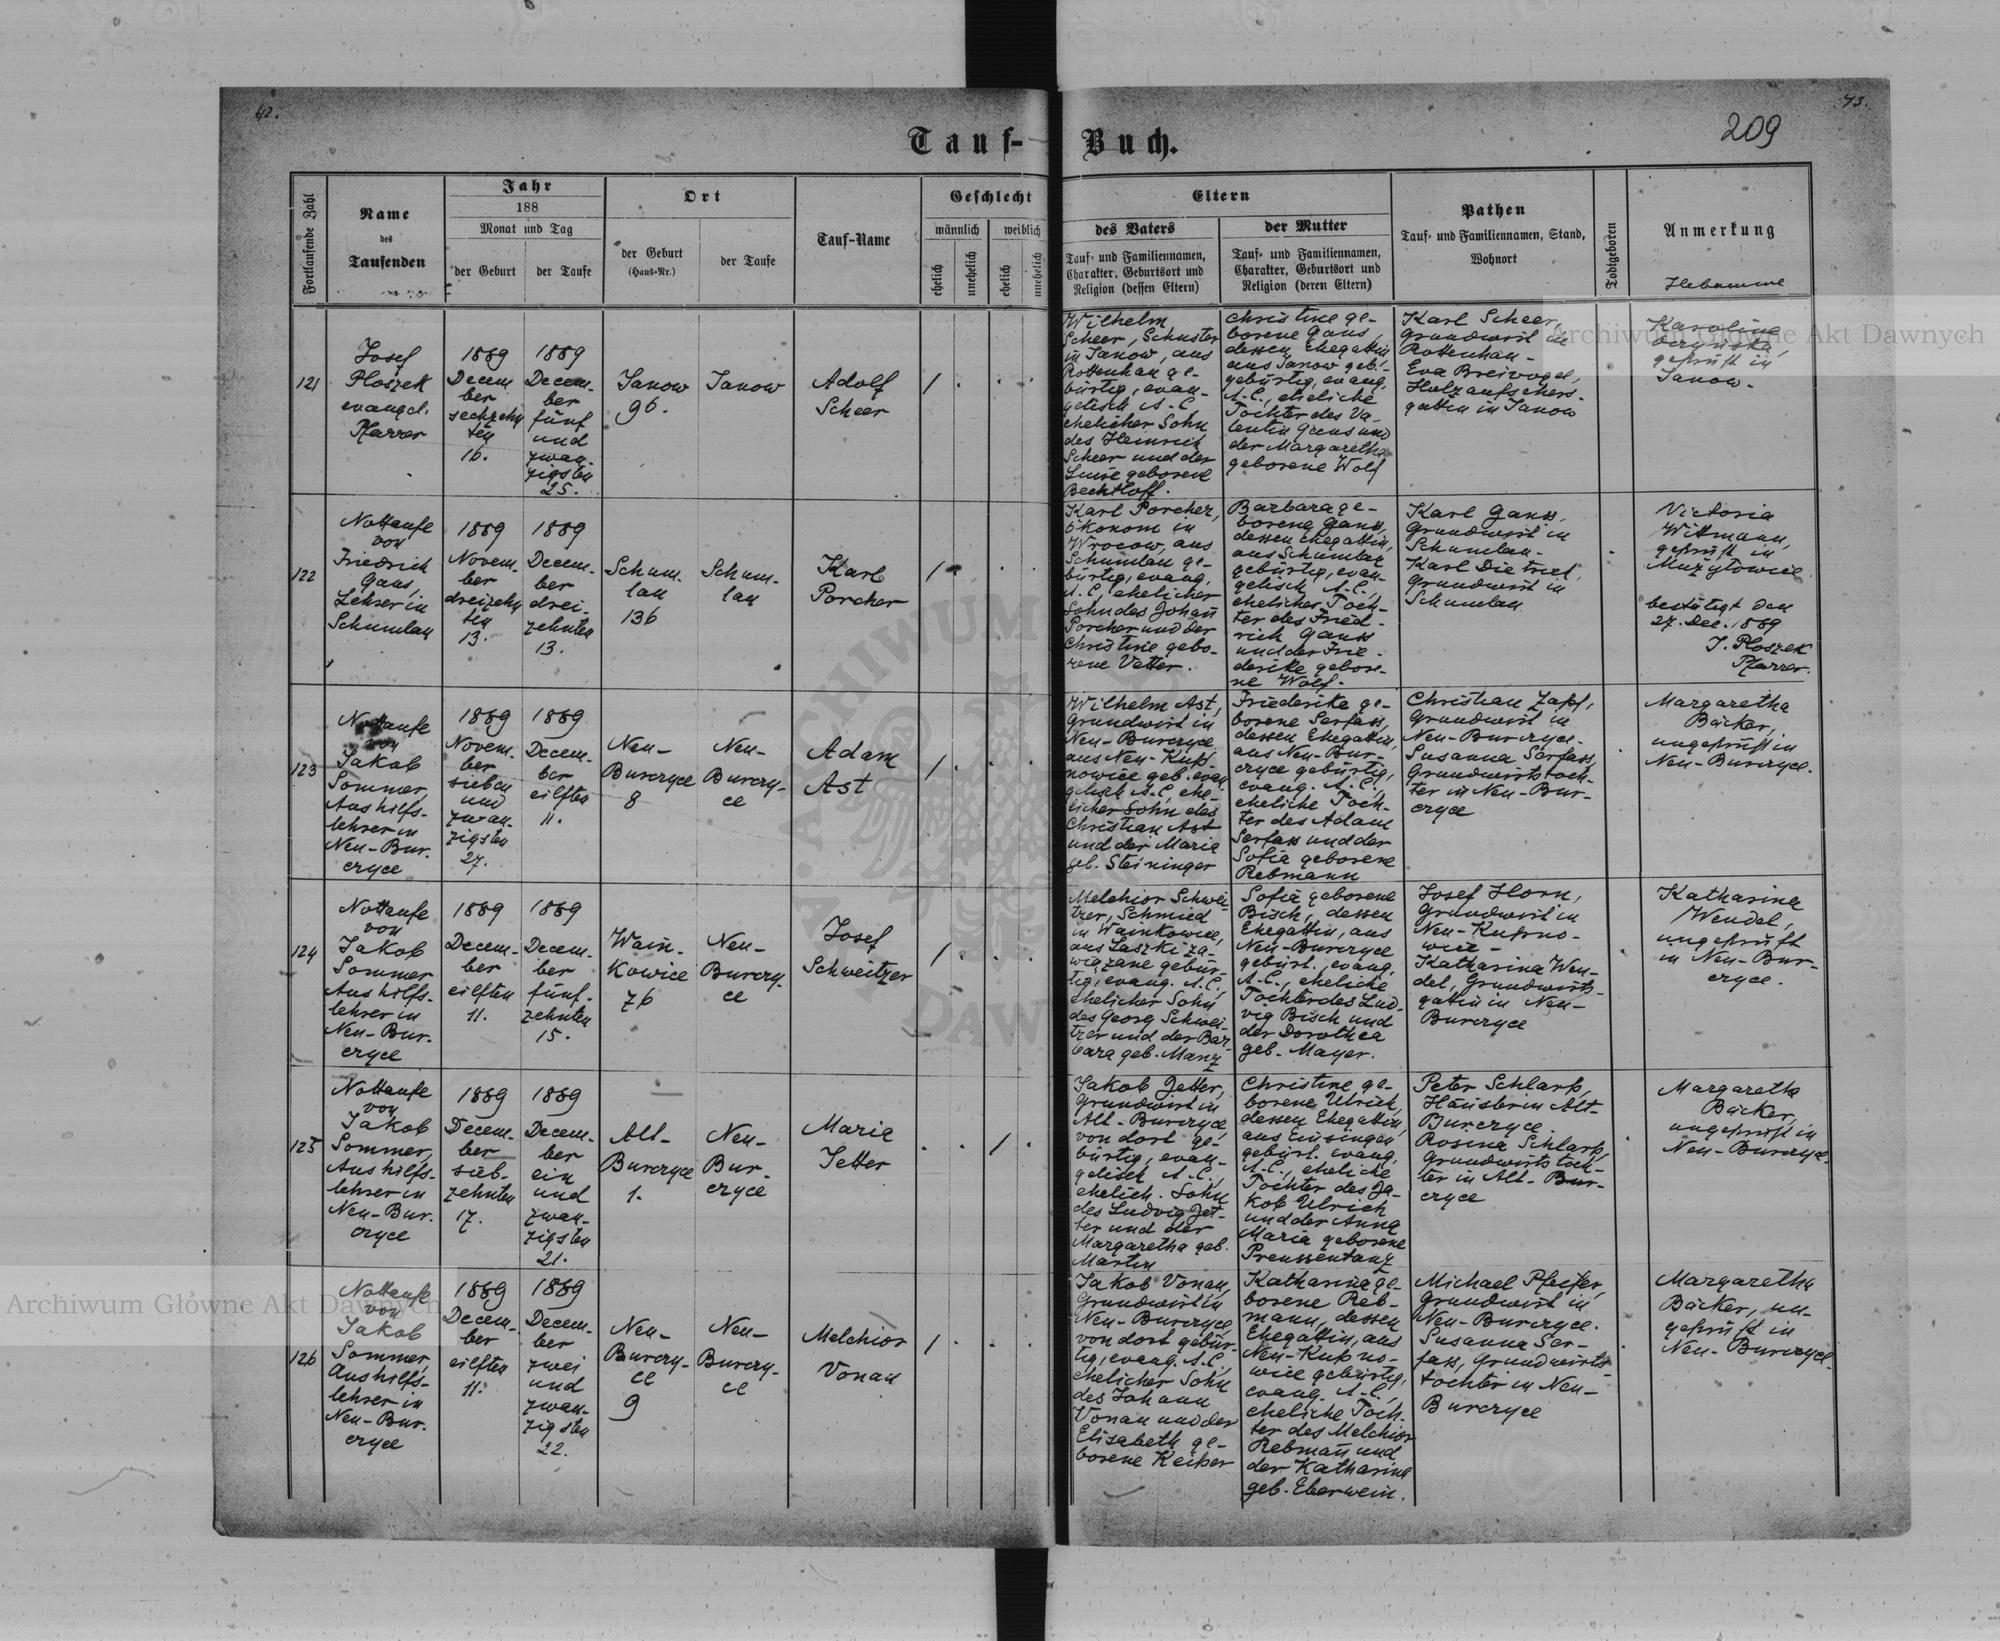 42.
43.
209
Tauf-Buch.
Fortlaufende Zahl
Name
des
Taufenden
Jahr
188
Monat und Tag
der Geburt
der Taufe
Ort
der Geburt
(Haus-Nr.)
der Taufe
Tauf-Name
Geschlecht
männlich
weiblich
ehelich
unehelich
ehelich
unehelich
Eltern
des Vaters
Tauf- und Familiennamen,
Charakter, Geburtsort und
Religion (dessen Eltern)
der Mutter
Tauf- und Familiennamen,
Charakter, Geburtsort und
Religion (deren Eltern)
Pathen
Tauf- und Familiennamen, Stand,
Wohnort
Todtgeboren
Anmerkung
Hebamme
121
Josef
Ploszek
evangel.
Pfarrer
1889
Decem-
ber
sechzehn
ten
16.
1889
Decem-
ber
fünf
und
zwan-
zigsten
25.
Janow
96.
Janow
Adolf
Scheer
/
Wilhelm
Scheer, Schuster
in Janow, aus
Rottenhan ge-
bürtig, evan-
gelisch A.C.
ehelicher Sohn
des Heinrich
Scheer und der
Luise geborene
Bechtloff.
Christine ge-
borene Gans,
dessen Ehegattin
aus Janow geb.
gebürtig, evang.
A.C., eheliche
Tochter des Va-
lentin Gans und
der Margaretha
geborene Wolf
Karl Scheer,
Grundwirt in
Rottenhan -
Eva Breivogel,
Holzaufsehers-
gattin in Janow
Karoline
geprüft in
Janow.
122
Nottaufe
von
Friedrich
Gans,
Lehrer in
Schumlau
1889
Novem-
ber
dreizehn
ten
13.
1889
Decem-
ber
drei-
zehnten
13.
Schum-
lau
136
Schum-
lau
Karl
Porcher
/
Karl Porcher,
Ökonom in
Wrocow, aus
Schumlau ge-
bürtig, evang.
A.C. ehelicher
Sohn des Johan̄
Porcher und der
Christine gebo-
rene Vetter.
Barbara ge-
borene Ganss,
dessen Ehegattin,
aus Schumlau
gebürtig, evan-
gelisch A.C.,
ehelicher Toch-
ter des Fried-
rich Ganss
und der Frie-
derike gebore-
ne Wolf.
Karl Ganss,
Grundwirt in
Schumlau -
Karl Dietrich,
Grundwirt in
Schumlau
Victoria
Witmann,
geprüft in
Muzytowice
bestätigt den
27. Dec. 1889
J. Ploszek
Pfarrer.
123
Nottaufe
von
Jakob
Sommer,
Aushilfs-
lehrer in
Neu-Bur-
cryce
1889
Novem-
ber
sieben
und
zwan-
zigsten
27.
1889
Decem-
ber
eilften
11.
Neu-
Burcryce
8
Neu-
Burcry-
ce
Adam
Ast
/
Wilhelm Ast,
Grundwirt in
Neu-Burcryce
aus Neu-Kup-
nowice geb. evan
gelisch A.C., ehe-
licher Sohn des
Christian Ast
und der Maria
geb. Steininger
Friederike ge-
borene Serfass,
dessen Ehegattin,
aus Neu-Bur-
cryce gebürtig,
evang. A.C.,
eheliche Toch-
ter des Adam
Serfass und der
Sofia geborene
Rebmann
Christian Zapf,
Grundwirt in
Neu-Burcryce -
Susanna Serfass,
Grundwirtstoch-
ter in Neu-Bur-
cryce
Margaretha
Bäcker,
ungeprüft in
Neu-Burcryce.
124
Nottaufe
von
Jakob
Sommer
Aushilfs-
lehrer in
Neu-Bur-
cryce
1889
Decem-
ber
eilften
11.
1889
Decem-
ber
fünf-
zehnten
15.
Wain-
kowice
76
Neu-
Burcry-
ce
Josef
Schweitzer
/
Melchior Schwei-
tzer, Schmied
in Wainkowice,
aus Laszki za-
wiązane gebür-
tig, evang. A.C.,
ehelicher Sohn
des Georg Schwei-
tzer und der Bar-
bara geb. Manz
Sofia geborene
Bisch, dessen
Ehegattin, aus
Neu-Burcryce
gebürt. evang.
A.C., eheliche
Tochter des Lud-
vig Bisch und
der Dorothea
geb. Mayer.
Josef Horn,
Grundwirt in
Neu-Kupno-
wice -
Katharina Wen-
del, Grundwirts-
gattin in Neu-
Burcryce
Katharina
Wendel,
ungeprüft
in Neu-Bur-
cryce.
125
Nottaufe
von
Jakob
Sommer,
Aushilfs-
lehrer in
Neu-Bur-
cryce
1889
Decem-
ber
sieb-
zehnten
17.
1889
Decem-
ber
ein
und
zwan-
zigsten
21.
Alt-
Burcryce
1.
Neu-
Bur-
cryce
Maria
Jetter
/
Jakob Jetter,
Grundwirt in
Alt-Burcryce,
von dort ge-
bürtig, evan-
gelisch A.C.,
ehelich. Sohn
des Ludvig Jet-
ter und der
Margaretha geb.
Martin
Christine ge-
borene Ulrich,
dessen Ehegattin,
aus Einsingen
gebürt. evang.
A.C., eheliche
Tochter des Ja-
kob Ulrich
und der Anna
Maria geborene
Preussentanz
Peter Schlarp,
Häusler in Alt-
Burcryce.
Rosina Schlarp,
Grundwirtstoch-
ter in Alt-Bur-
cryce
Margaretha
Bäcker,
ungeprüft in
Neu-Burcryce.
126
Nottaufe
von
Jakob
Sommer,
Aushilfs-
lehrer in
Neu-Bur-
cryce
1889
Decem-
ber
eilften
11.
1889
Decem-
ber
zwei
und
zwan-
zigsten
22.
Neu-
Burcry-
ce
9
Neu-
Burcry-
ce
Melchior
Vonau
/
Jakob Vonau,
Grundwirt in
Neu-Burcryce
von dort gebür-
tig, evang. A.C.,
ehelicher Sohn
des Johann
Vonau und der
Elisabeth ge-
borene Keiper
Katharina ge-
borene Reb-
mann, dessen
Ehegattin, aus
Neu-Kupno-
wice gebürtig,
evang. A.C.,
eheliche Toch-
ter des Melchior
Rebman̄ und
der Katharina
geb. Eberwein.
Michael Pfeifer,
Grundwirt in
Neu-Burcryce.
Susanna Ser-
fass, Grundwirts-
tochter in Neu-
Burcryce
Margaretha
Bäcker, un-
geprüft in
Neu-Burcryce.
Archiwum Główne Akt Dawnych
Archiwum Główne Akt Dawnych